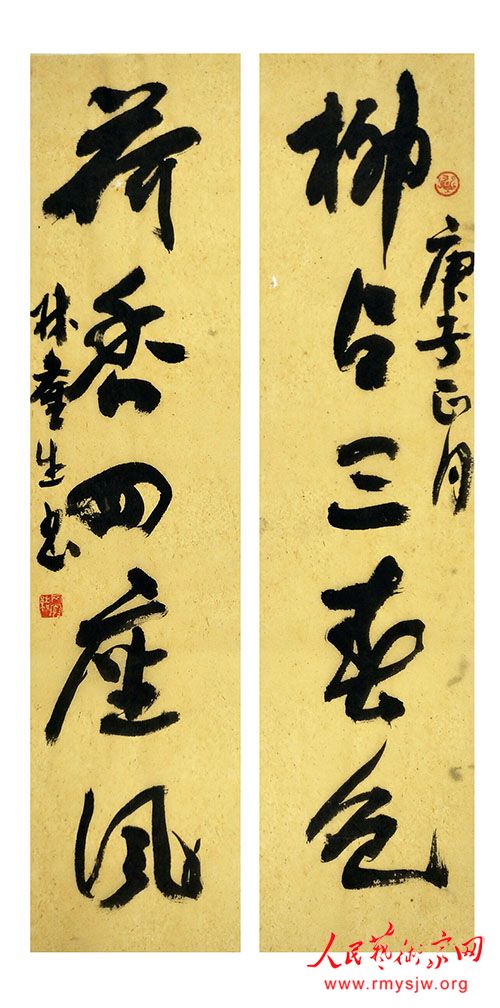 柳占三春色
庚子正月
荷香四座风
林童生书
人民艺术家网
www.rmysjw.org